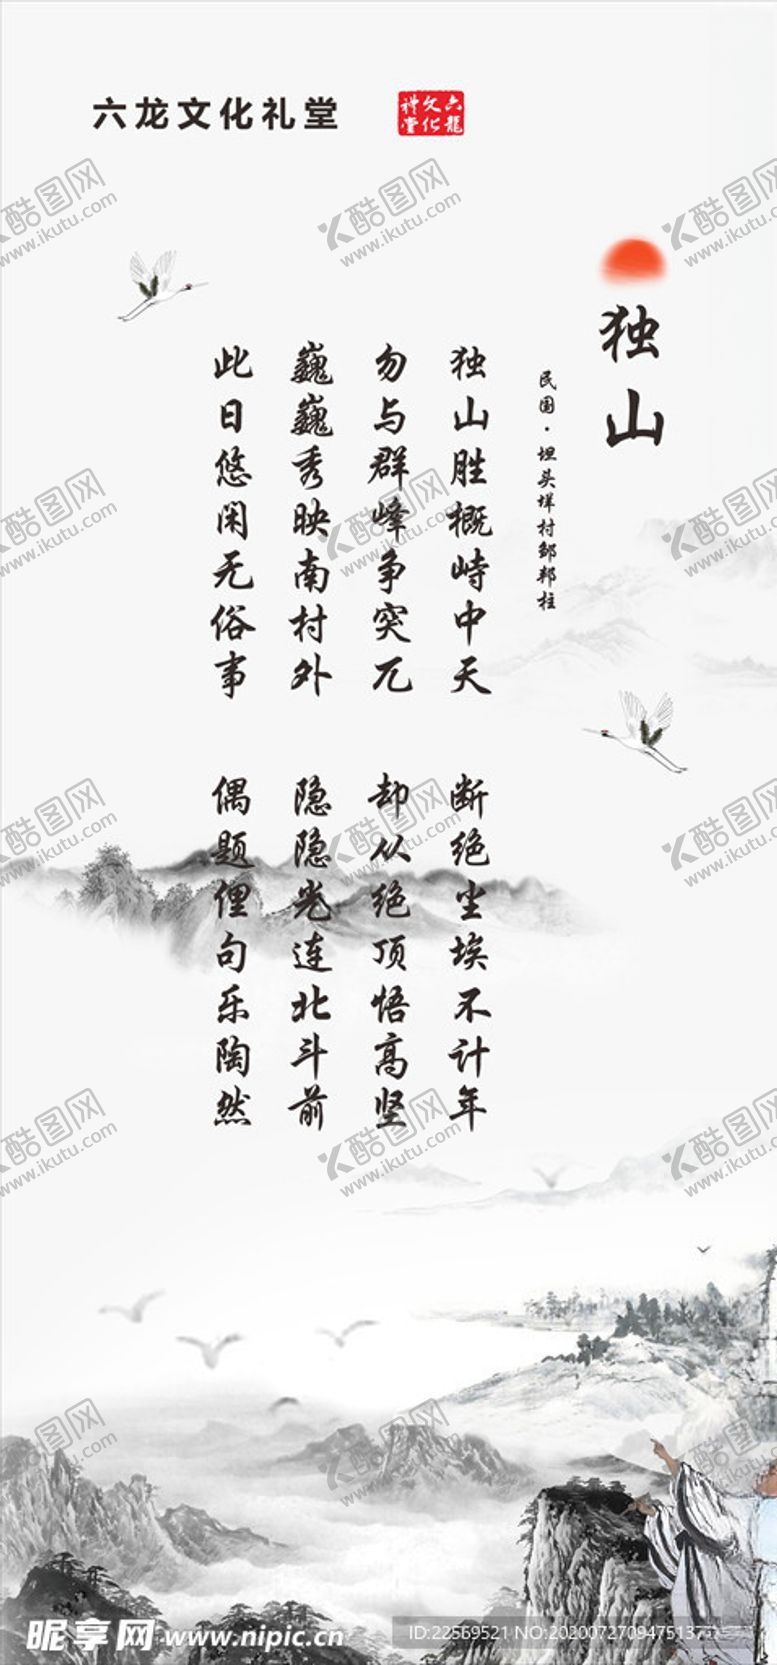 六龙文化礼堂
六龍文化禮堂
独山
民国·坦头垟村邹邦柱
独山胜概峙中天 断绝尘埃不计年
勿与群峰争突兀 却从绝顶悟高坚
巍巍秀映南村外 隐隐光连北斗前
此日悠闲无俗事 偶题俚句乐陶然
酷图网
www.ikutu.com
昵享网 www.nipic.cn
ID:22569521 NO:20200727094751372